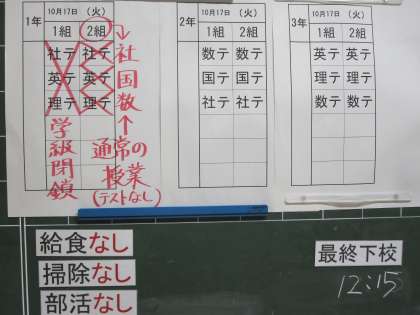 1年
10月17日 (火)
1組 2組
社テ 社テ
英テ 英テ
理テ 理テ
学級閉鎖
↓
社
国
数
↑
通常の
授業
(テストなし)
2年
10月17日 (火)
1組 2組
数テ 数テ
国テ 国テ
社テ 社テ
3年
10月17日 (火)
1組 2組
英テ 英テ
理テ 理テ
数テ 数テ
給食なし
掃除なし
部活なし
最終下校
12:15